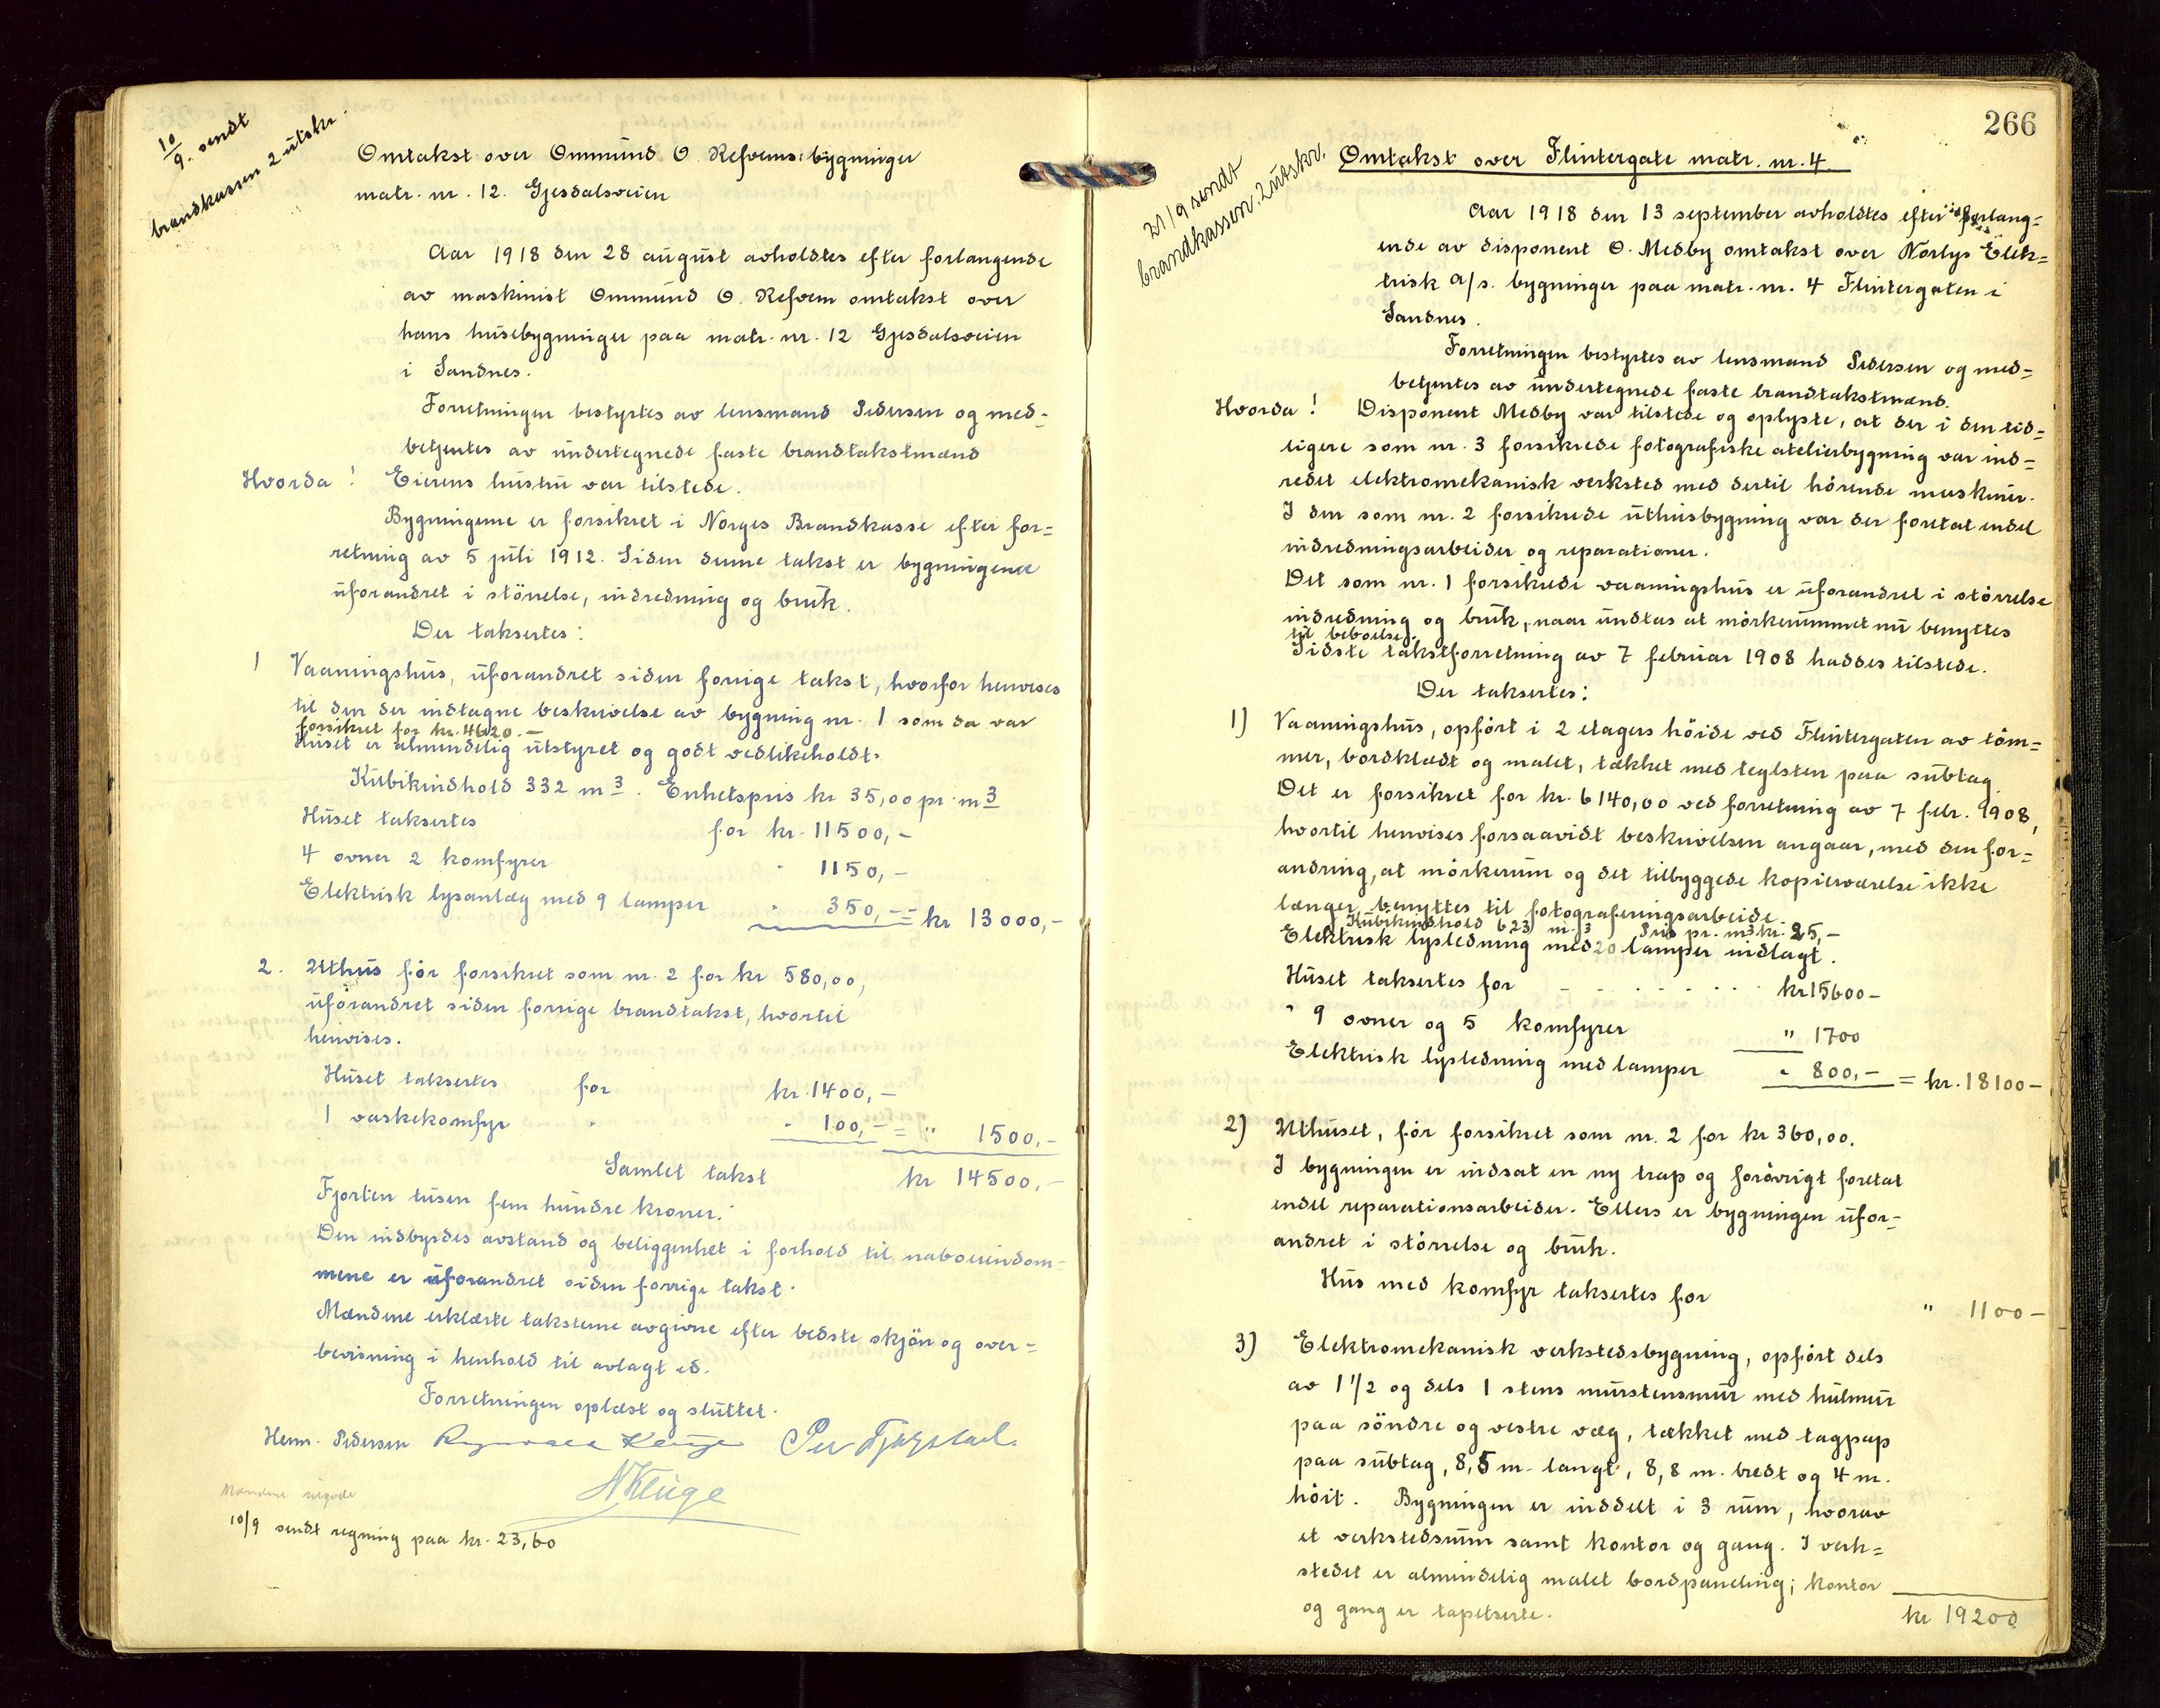 10/9. sendt
brandkassen 2 utskr.
Omtakst over Ommund O. Refvems bygninger
matr. nr. 12. Gjesdalsveien
Aar 1918 den 28 august avholdtes efter forlangende
av maskinist Ommund O. Refvem omtakst over
hans husebygninger paa matr. nr. 12 Gjesdalsveien
i Sandnes.
Forretningen bestyrtes av lensmand Pedersen og med-
betjentes av undertegnede faste brandtakstmænd
Hvorda! Eierens hustru var tilstede.
Bygningerne er forsikret i Norges Brandkasse efter for=
retning av 5 juli 1912. Siden denne takst er bygningene
uforandret i störrelse, indredning og bruk.
Der taksertes:
1 Vaaningshus, uforandret siden forrige takst, hvorfor henvises
til den der indtagne beskrivelse av bygning nr. 1 som da var
forsikret for kr. 4620.-
Huset er almindelig utstyret og godt vedlikeholdt.
Kubikindhold 332 m3. Enhetspris kr 35,00 pr. m3
Huset taksertes for kr. 11500,-
4 ovner 2 komfyrer " 1150,-
Elektrisk lysanlæg med 9 lamper " 350,- = kr 13000,-
2. Uthus för forsikret som nr. 2 for kr 580,00,
uforandret siden forrige brandtakst, hvortil
henvises.
Huset taksertes for kr. 1400,-
1 vaskekomfyr " " 100,- = " 1500,-
Samlet takst kr 14500,-
Fjorten tusen fem hundre kroner.
Den indbyrdes avstand og beliggenhet i forhold til naboeiendom-
mene er uforandret siden forrige takst.
Mændene erklærte taksterne avgivne efter bedste skjön og over=
bevisning i henhold til avlagt ed.
Forretningen oplæst og sluttet.
Herm. Pedersen Per Tjågstad
N Kluge
10/9 sendt regning paa kr. 23,60
266
21/9 sendt
brandkassen. 2 utskr.
Omtakst over Flintergate matr. nr. 4.
Aar 1918 den 13 september avholdtes efter forlang=
ende av disponent O. Medby omtakst over Norlys Elek=
trisk A/s. bygninger paa matr. nr. 4 Flintergaten i
Sandnes.
Forretningen bestyrtes av lensmand Pedersen og med=
betjentes av undertegnede faste brandtakstmænd.
Hvorda! Disponent Medby var tilstede og oplyste, at der i den tid=
ligere som nr. 3 forsikrede fotografiske atelierbygning var ind=
redet elektromekanisk verksted med dertil hörende maskiner.
I den som nr. 2 forsikrede uthusbygning var der foretat endel
indredningsarbeider og reparationer.
Det som nr. 1 forsikrede vaaningshus er uforandret i störrelse
indredning og bruk, naar undtas at mörkerummet nu benyttes
til beboelse.
Sidste takstforretning av 7 februar 1908 haddes tilstede.
Der taksertes:
1) Vaaningshus, opfört i 2 etagers höide ved Flintergaten av töm=
mer, bordklædt og malet, tækket med teglsten paa subtag.
Det er forsikret for kr. 6140,00 ved forretning av 7 febr. 1908,
hvortil henvises forsaavidt beskrivelsen angaar, med den for=
andring, at mörkerum og det tilbyggede kopieværelse ikke
længer benyttes til fotograferingsarbeide.
Kubikindhold 623 m.3 Pris pr. m3 kr. 25,-
Elektrisk lysledning med 20 lamper indlagt.
Huset taksertes for - - . . . . . . kr 15600-
" 9 ovner og 5 komfyrer " 1700
Elektrisk lysledning med lamper " 800,- = kr. 18100-
2) Uthuset, för forsikret som nr. 2 for kr 360,00.
I bygningen er indsat en ny trap og forövrigt foretat
endel reparationsarbeider. Ellers er bygningen ufor-
andret i störrelse og bruk.
Hus med komfyr taksertes for " 1100-
3) Elektromekanisk verkstedsbygning, opfört dels
av 1 1/2 og dels 1 stens murstensmur med hulmur
paa söndre og vestre væg, tækket med tagpap
paa subtag, 8,5 m. langt, 8,8 m. bredt og 4 m.
höit. Bygningen er inddelt i 3 rum, hvorav
et verkstedsrum samt kontor og gang. I verk=
stedet er almindelig malet bordpaneling; kontor
og gang er tapetserte.
kr 19200